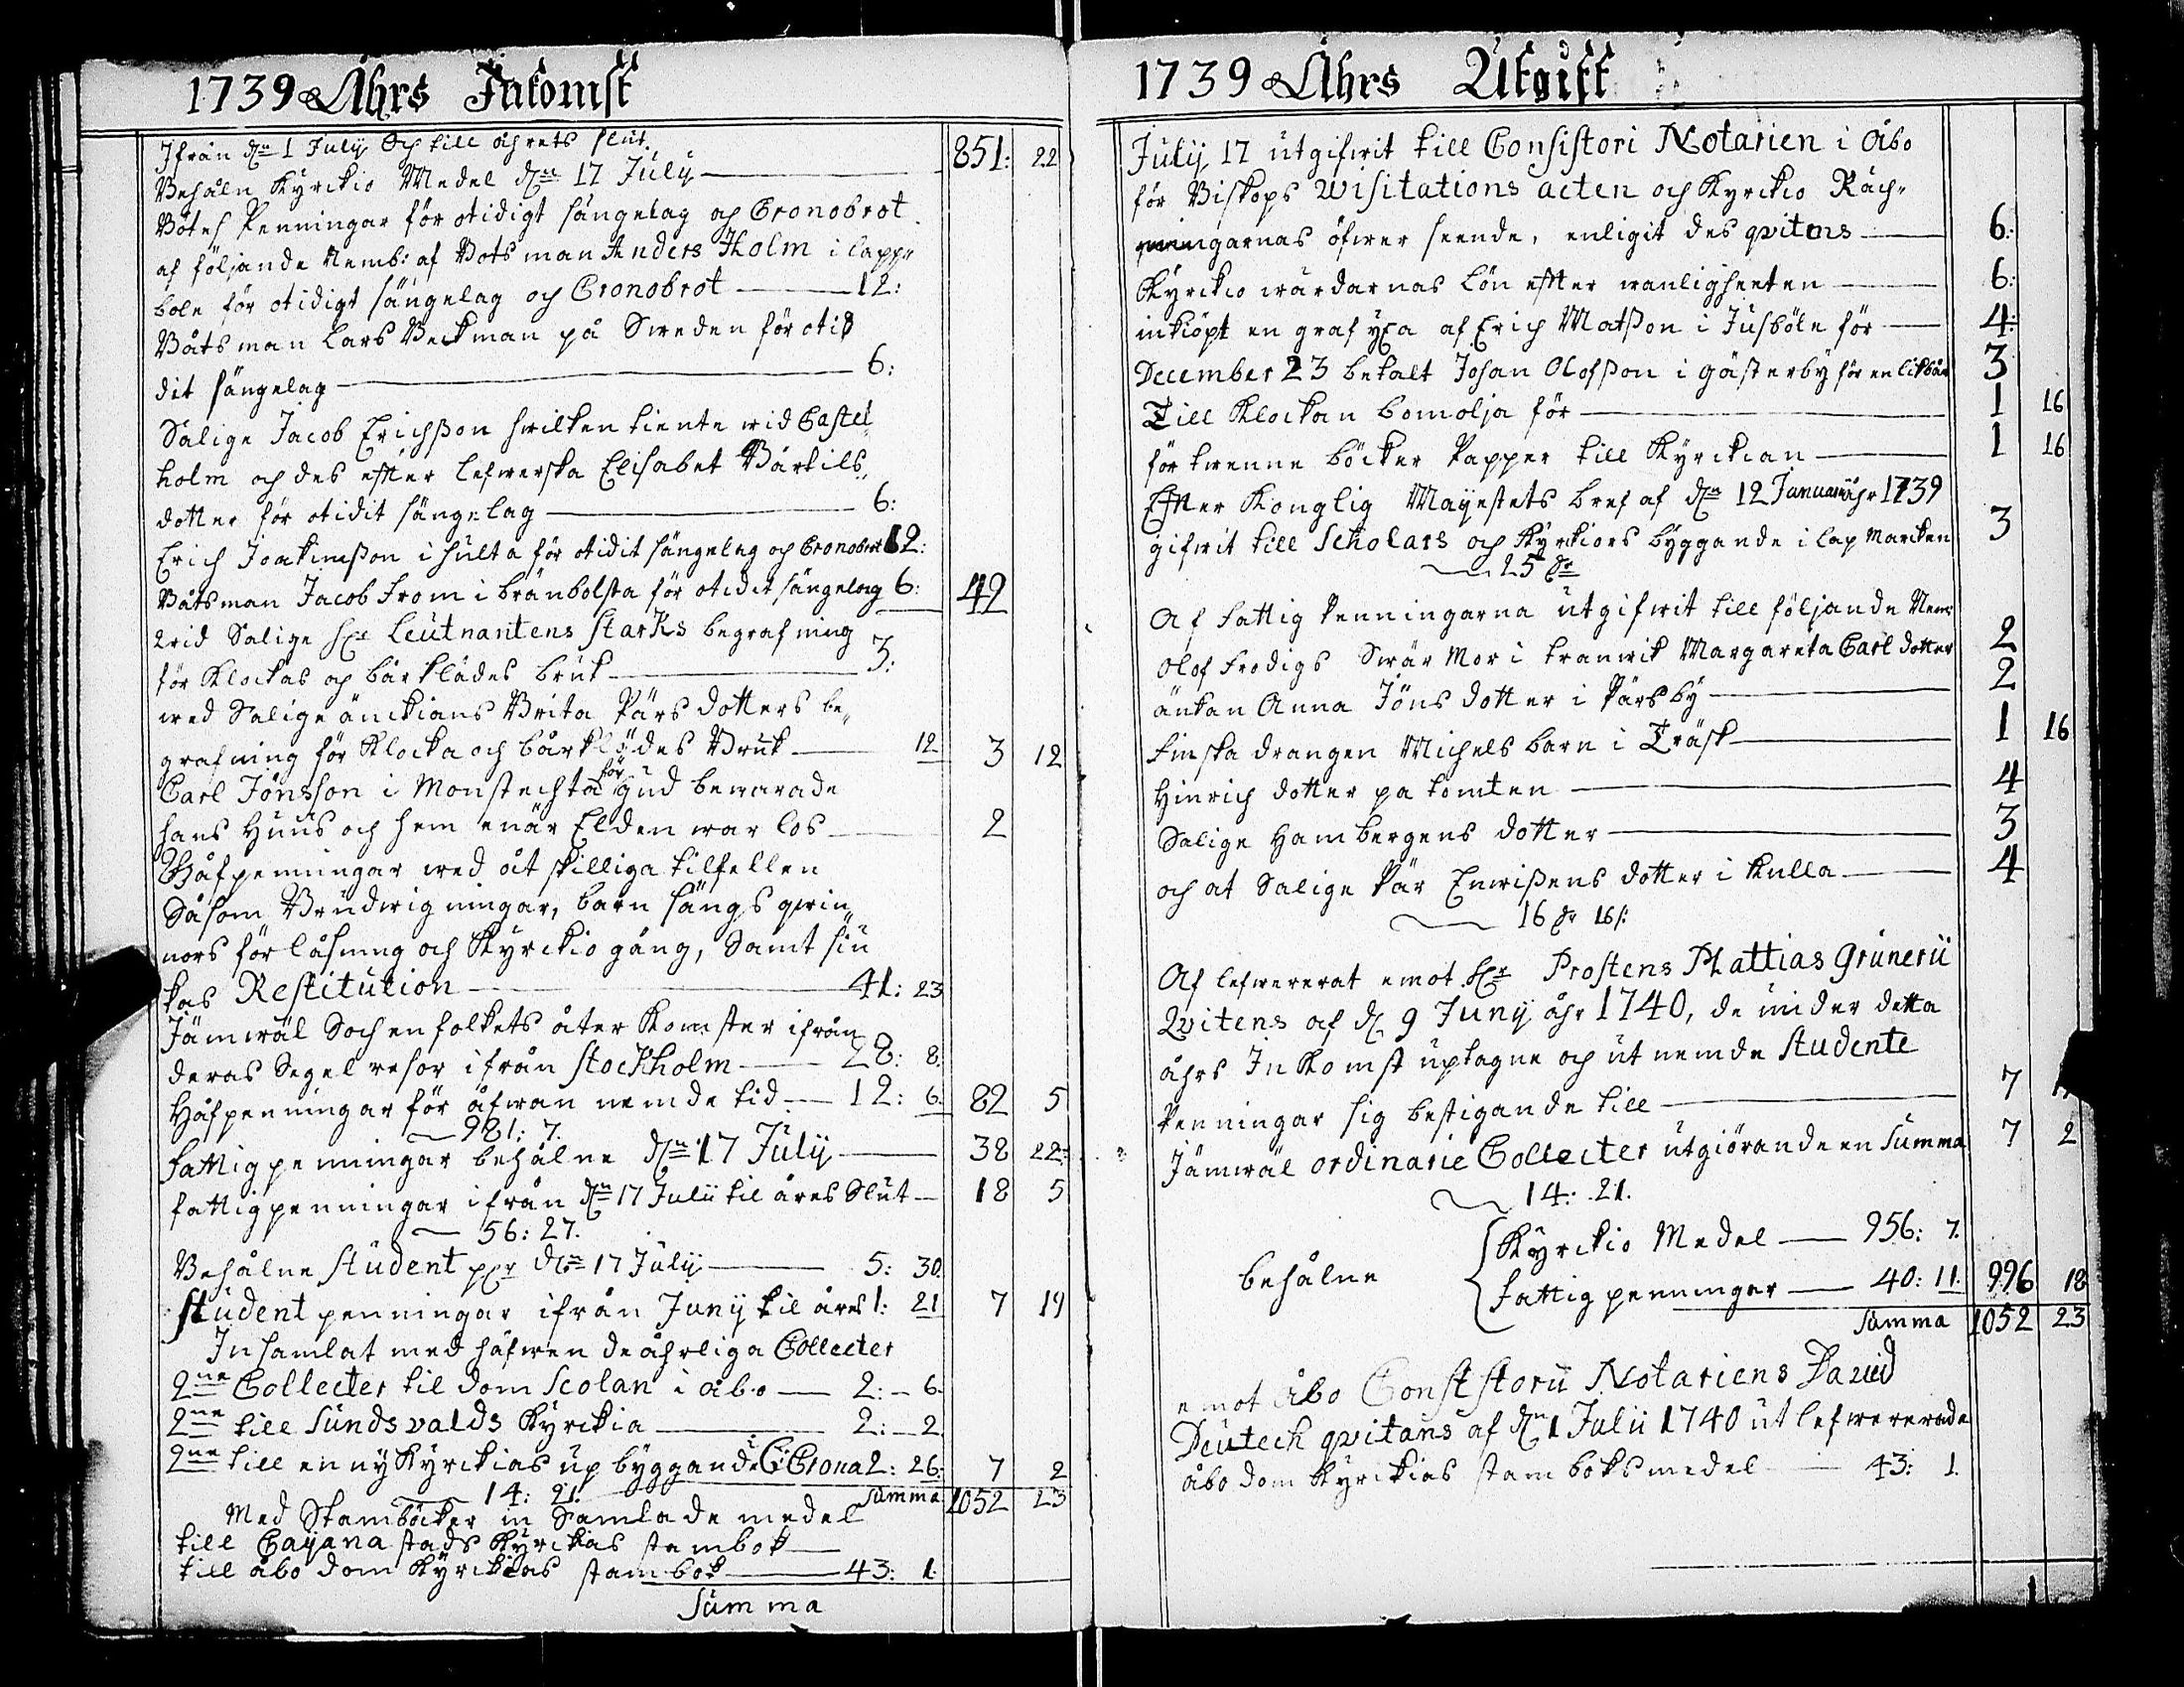 1739 Åhrs Inkomst
Ifrån dn 1 July Och till åhrets slut.
Behåln Kyrckio Medel dn 17 July — 851: 22
Böter Penningar för otidigt sängelag och Cronobrot
af följande Nemb: af Botsman Anders Holm i lapp„
bole för otidigt sängelag och Cronobrot — 12:
Båtsman Lars Beckman på Sweden för oti
dit sängelag — 6:
Salige Jacob Erichßon hwilken tiente wid Castel„
holm och des efter lefwerska Elisabet Bärtils„
dotter för otidit sängelag — 6:
Erich Joakimßon i hulta för otidit sängelag och Cronobrot 12:
Båtsman Jacob From i bränbolsta för otidit sängelag 6: 42
Wid Salige hr Leutnantens Starks begrafning
för Klockas och bårklädes bruk — 3:
wed Salige änckians Brita Pärs dotters be„
grafning för Klocka och bårklädes Bruk — 12 3 12
Carl Jönsson i Monstechta för gud bewarade
hans Huus och hem enär Elden war lös — 2
Håfpenningar wed åtskilliga tilfellen
Såsom Brudwigningar, barn sängs qwin„
nors förlåsning och Kyrckio gång, Samt siu
kas Restitution — 41: 23
Jämwäl Sochenfolkets återkomster ifrån
deras Segel resor ifrån Stockholm — 28: 8.
Håfpenningar för åfwan nemde tid — 12: 6. 82 5
981: 7.
Fattigpenningar behålne dn 17 July — 38 22:
fattigpenningar ifrån dn 17 Julii til åres Slut — 18 5
56: 27.
Behålne Student pgr dn 17 July — 5: 30.
Student penningar ifrån Juny til åres 1: 21 7 19
Insamlat med håfwen de åhrliga Collecter
2ne Collecter til dom Scolan i åbo — 2: — 6.
2ne till Sundsvalds Kyrckia — 2: — 2
2ne till en ny Kyrckias up byggande Corona 2: 26: 7 2
14: 21. Summa 1052 23
Med Stamböcker in Samlade medel
till Cayana stads Kyrckias stambok —
till åbo dom Kyrckias stambok — 43: 1.
Summa
1739 Åhrs Utgift
July 17 utgifwit till Consistori Notarien i Åbo
för Biskops Wisitations acten och Kyrckio Räch„
ningarnas öfwer seende, enligit des qvitens — 6:
Kyrckio wärdarnas Lön efter wanligheeten — 6:
inkiöpt en graf yxa af Erich Matßon i Jusböle för — 4:
December 23 betalt Johan Olofßon i gästerby för en likbår 3
Till Klockan bomolja för — 1 16
för twenne böcker Papper till Kyrckian — 1 16
Efter Konglig Mayestets bref af dn 12 Januarii åhr 1739
gifwit till Scholars och Kyrckiors byggande i lap Marcken 3
25 dr
Af Fattig Penningarna utgifwit till följande Nem:
Olof Frodigs Swär Mor i tranwik Margareta Carl dotter 2
änkan Anna Jöns dotter i Pärsby — 2
Finska drangen Michels barn i Träsk — 1 16
Hinrich dotter pa tomten — 4
Salige Hambergens dotter — 3
och at Salige Pär Enwißens dotter i Kulla — 4
16 dr 16 s:
Af lefwererat emot hr Prostens Mattias Grunerii
Qvitens af d 9 Juny åhr 1740, de under detta
åhrs Inkomst uptagne och utnemde Studente
Penningar sig bestigande till — 7
Jämwäl ordinarie Collecter utgiörande en Summa 7 2
14: 21.
behålne
Kyrckio Medel — 956: 7.
Fattigpenningar — 40: 11. 996 18
Summa 1052 23
emot åbo Consistorii Notariens David
Deutsch qvitans af dn 1 Julii 1740 ut lefwererade
åbo dom Kyrckias stamboksmedel — 43: 1.